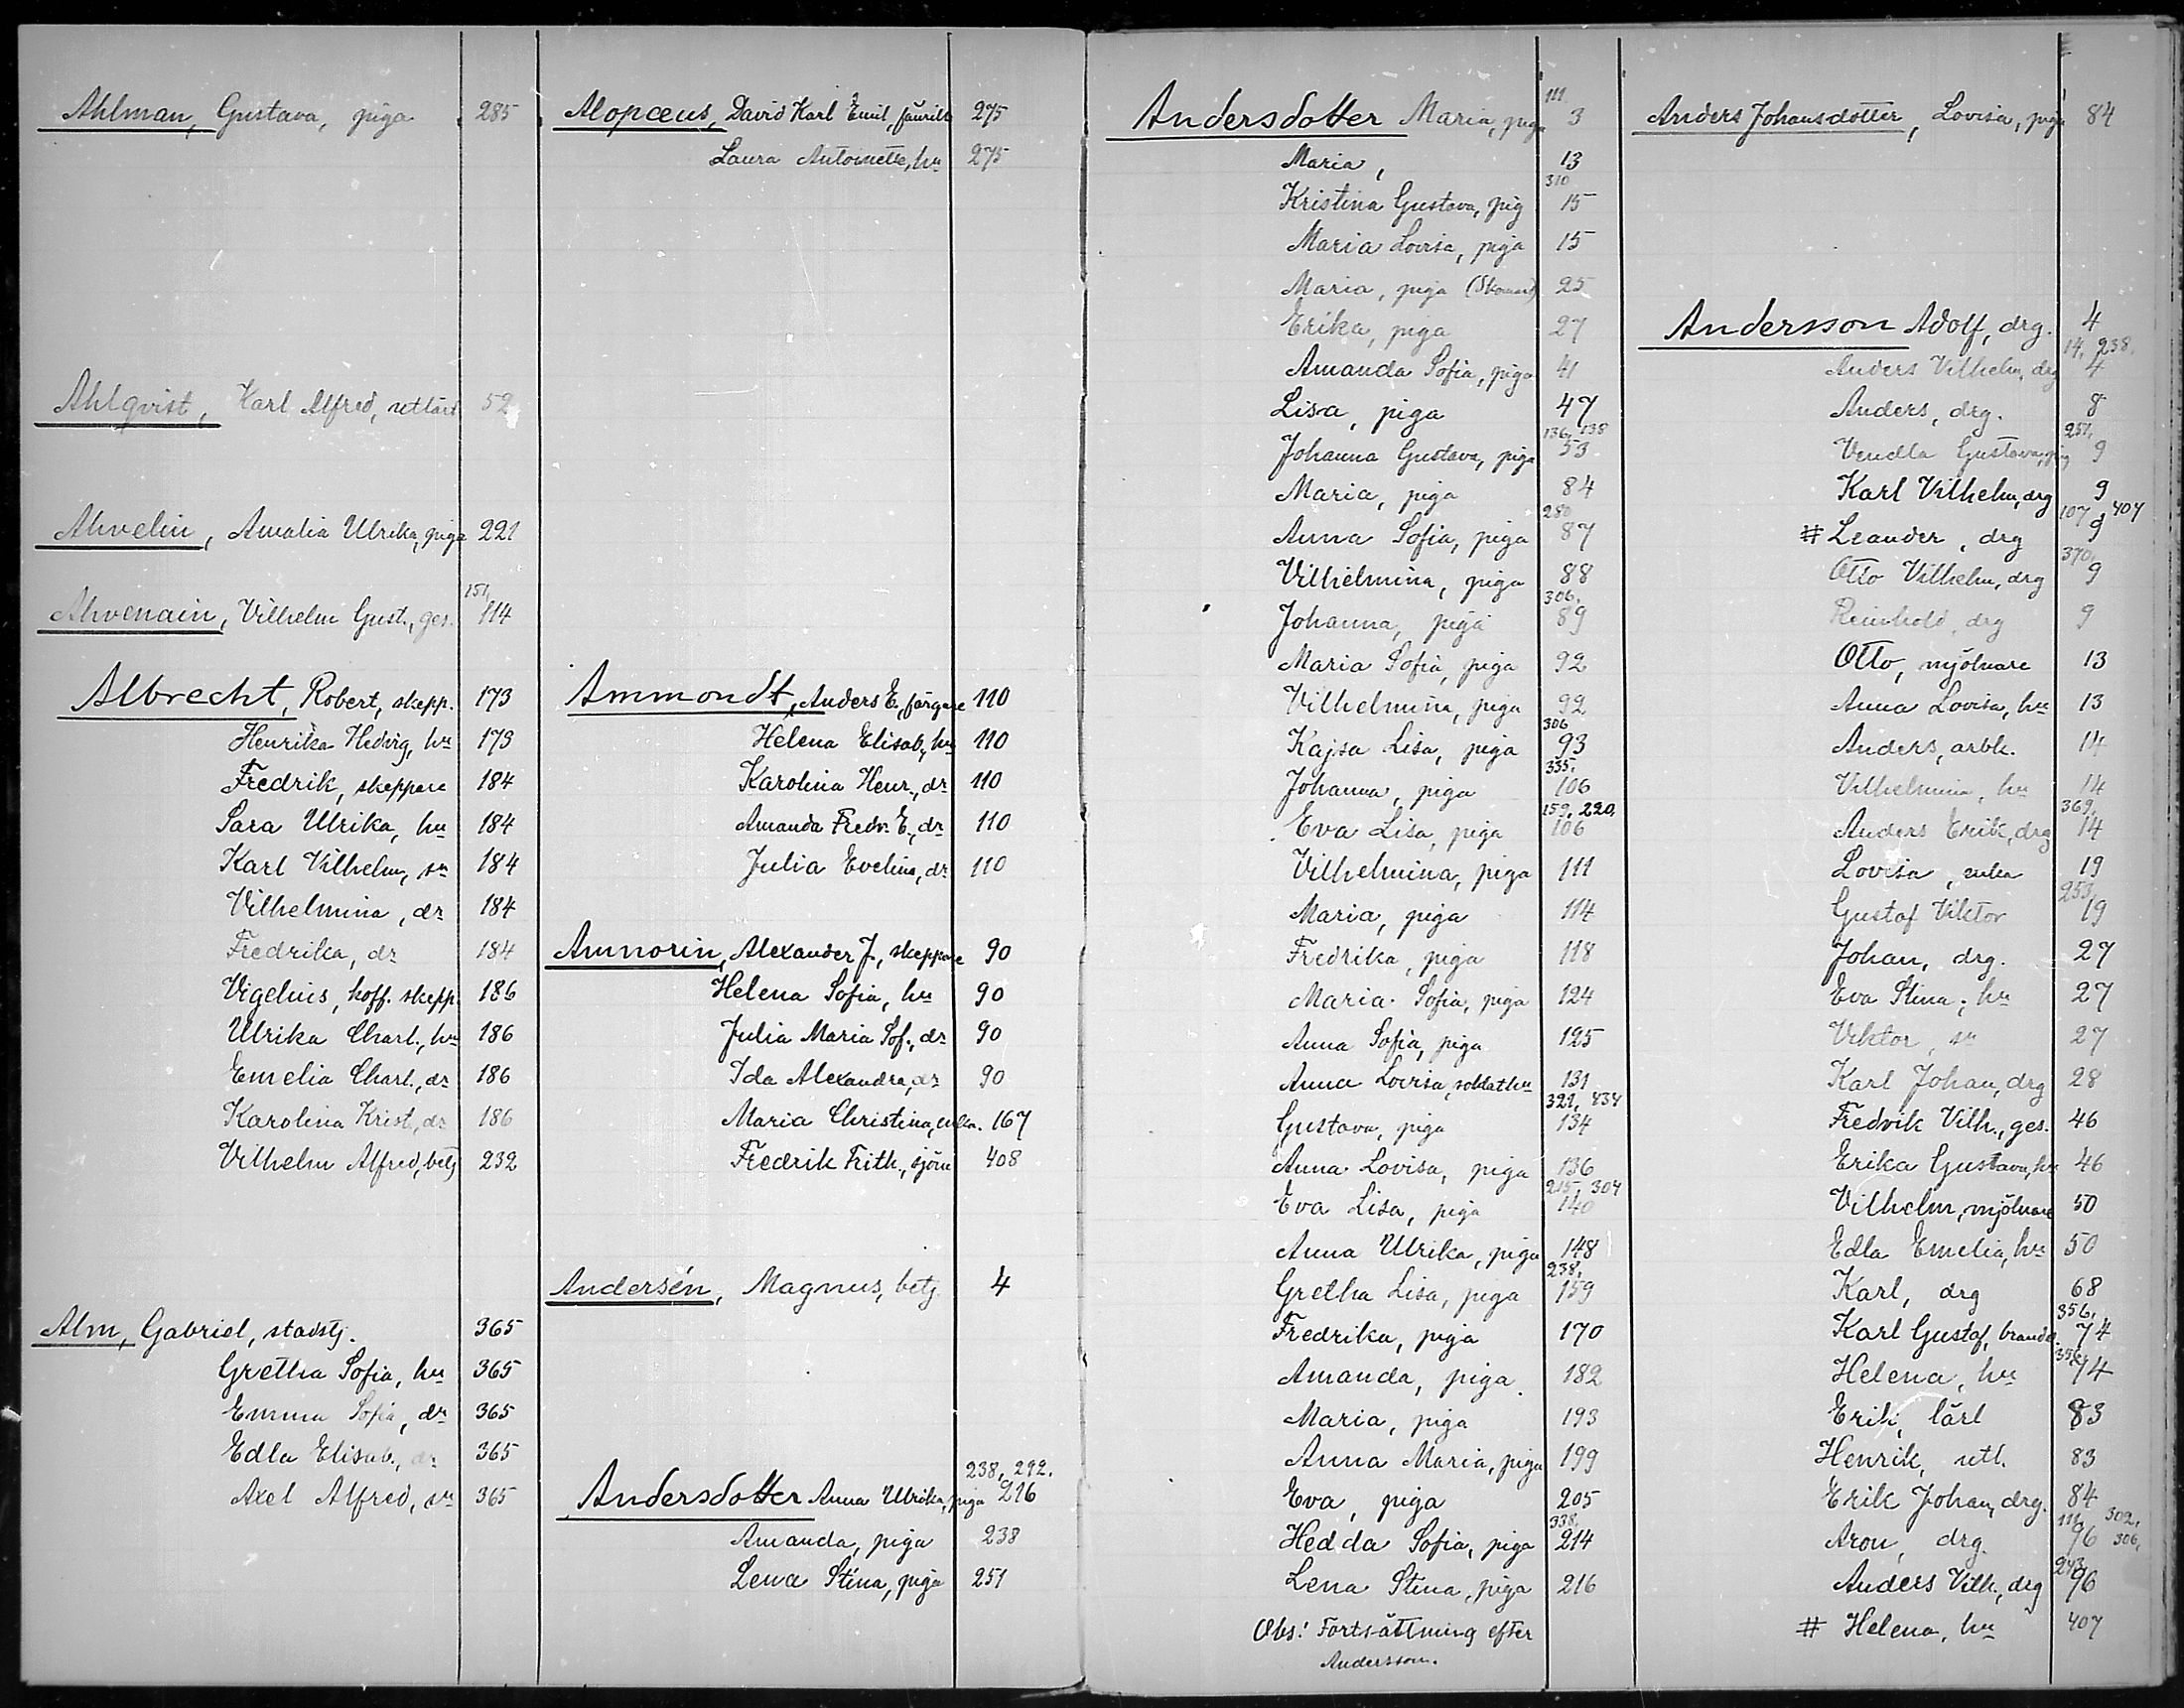 Ahlman, Gustava, piga 285
Ahlqvist, Karl Alfred, 52
Ahvelin, Amalia Ulrika, piga 221
151,
Ahvenain, Vilhelm Gust., ges. 114
Albrecht, Robert, skepp. 173
Henrika Hedvig, hu 173
Fredrik, skeppare 184
Sara Ulrika, hu 184
Karl Vilhelm, sn 184
Vilhelmina, dr 184
Fredrika, dr 184
Vigelius, koff. skepp. 186
Ulrika Charl., hu 186
Emelia Charl., dr 186
Karolina Krist., dr 186
Vilhelm Alfred, betj 232
Alm, Gabriel, stadstj. 365
Gretha Sofia, hu 365
Emma Sofia, dr 365
Edla Elisab., dr 365
Axel Alfred, sn 365
Alopceus, David Karl Emil, 275
Laura Antoinette, hu 275
Ammondt, Anders E., färgare 110
Helena Elisab., hu 110
Karolina Henr., dr 110
Amanda Fredr. E., dr 110
Julia Evelina, dr 110
Amnorin, Alexander J., skeppare 90
Helena Sofia, hu 90
Julia Maria Sof., dr 90
Ida Alexandra, dr 90
Maria Christina, enka. 167
Fredrik Frith., sjöm 408
Andersén, Magnus, betj. 4
238, 292.
Andersdotter Anna Ulrika, piga 216
Amanda, piga 238
Lena Stina, piga 251
111
Andersdotter Maria, piga 3
Maria, 13
310
Kristina Gustava, pig 15
Maria Lovisa, piga 15
Maria, piga 25
Erika, piga 27
Amanda Sofia, piga 41
Lisa, piga 47
136, 138
Johanna Gustava, piga 53
Maria, piga 84
280
Anna Sofia, piga 87
Vilhelmina, piga 88
306.
Johanna, piga 89
Maria Sofia, piga 92
Vilhelmina, piga 92
306
Kajsa Lisa, piga 93
335,
Johanna, piga 106
159, 220,
Eva Lisa, piga 106
Vilhelmina, piga 111
Maria, piga 114
Fredrika, piga 118
Maria Sofia, piga 124
Anna Sofia, piga 125
Anna Lovisa, soldathu 131
321, 434
Gustava, piga 134
Anna Lovisa, piga 136
215, 304
Eva Lisa, piga 140
Anna Ulrika, piga 148
238,
Gretha Lisa, piga 159
Fredrika, piga 170
Amanda, piga 182
Maria, piga 193
Anna Maria, piga 199
Eva, piga 205
338,
Hedda Sofia, piga 214
Lena Stina, piga 216
Obs! Fortsättning efter
Andersson.
Anders Johansdotter, Lovisa, piga 84
Andersson Adolf, drg. 4
14, 238,
Anders Vilhelm, drg 4
Anders, drg. 8
251,
Vendla Gustava, pig 9
Karl Vilhelm, drg 9
107, 407
# Leander, drg 9
370,
Otto Vilhelm, drg 9
Reinhold, drg 9
Otto, mjölnare 13
Anna Lovisa, hu 13
Anders, arbk. 14
Vilhelmina, hu 14
369,
Anders Erik, drg 14
Lovisa, enka 19
253,
Gustaf Viktor 19
Johan, drg. 27
Eva Stina, hu 27
Viktor, sn 27
Karl Johan, drg 28
Fredrik Vilh., ges. 46
Erika Gustava, hu 46
Vilhelm, mjölnare 50
Edla Emelia, hu 50
Karl, drg 68
356,
Karl Gustaf, 74
356,
Helena, hu 74
Erik, lärl 83
Henrik, utl. 83
Erik Johan, drg. 84
111, 302,
Aron, drg. 96 306,
243,
Anders Vilh., drg 96
# Helena, hu 407